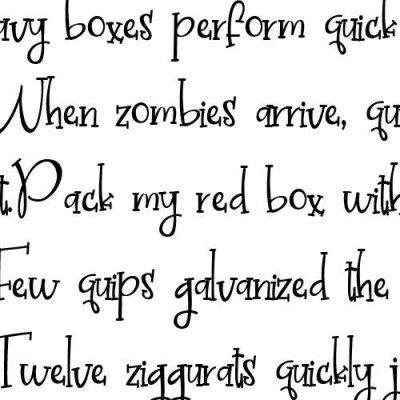 avy boxes perform quick
When zombies arrive, qu
t.Pack my red box with
Few quips galvanized the
Twelve ziggurats quickly j